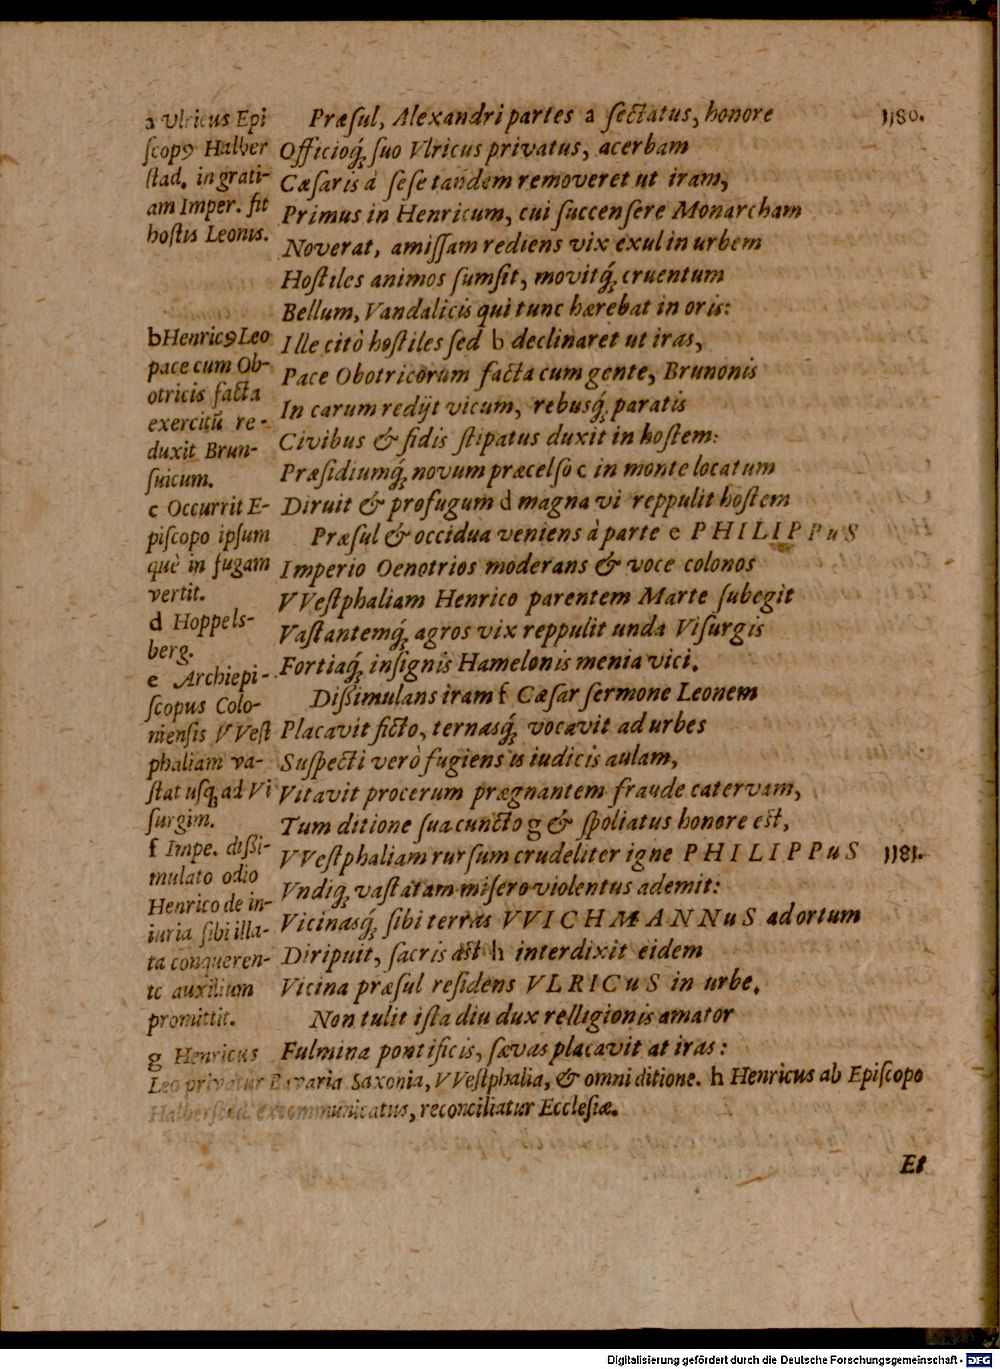 a Vlricus Epi
ſcopꝰ Halber
ſtad. in grati-
am Imper. fit
hoſtis Leonis.
b Henricꝰ Leo
pace cum Ob-
otricis facta
exercitũ re-
duxit Brun-
ſuicum.
c Occurrit E-
piſcopo ipſum
què in fugam
vertit.
d Hoppels-
berg.
e Archiepi-
ſcopus Colo-
nienſis VVeſt
phaliam va-
ſtat uſq; ad Vi
ſurgim.
f Impe. dißi-
mulato odio
Henrico de in-
iuria ſibi illa-
ta conqueren-
te auxilium
promittit.
Præſul, Alexandri partes a ſectatus, honore 1180.
Officioq́; ſuo Vlricus privatus, acerbam
Cæſaris à ſeſe tandem removeret ut iram,
Primus in Henricum, cui ſuccenſere Monarcham
Noverat, amiſſam rediens vix exul in urbem
Hoſtiles animos ſumſit, movitq́; cruentum
Bellum, Vandalicis qui tunc hærebat in oris:
Ille citò hoſtiles ſed b declinaret ut iras,
Pace Obotricorum facta cum gente, Brunonis
In carum redijt vicum, rebusq́; paratis
Civibus & fidis ſtipatus duxit in hoſtem:
Præſidiumq́; novum præcelſo c in monte locatum
Diruit & profugum d magna vi reppulit hoſtem
Præſul & occidua veniens à parte e PHILIPPuS
Imperio Oenotrios moderans & voce colonos
VVeſtphaliam Henrico parentem Marte ſubegit
Vaſtantemq́; agros vix reppulit unda Viſurgis
Fortiaq́; inſignis Hamelonis menia vici.
Dißimulans iram f Cæſar ſermone Leonem
Placavit ficto, ternasq́; vocavit ad urbes
Suſpecti verò fugiens is iudicis aulam,
Vitavit procerum prægnantem fraude catervam,
Tum ditione ſua cuncto g & ſpoliatus honore eſt,
VVeſtphaliam rurſum crudeliter igne PHILIPPuS 1181.
Vndiq; vaſtatam miſero violentus ademit:
Vicinasq́; ſibi terras VVICHMANNuS ad ortum
Diripuit, ſacris aſt h interdixit eidem
Vicina præſul reſidens VLRICuS in urbe.
Non tulit iſta diu dux relligionis amator
Fulmina pontificis, ſævas placavit at iras:
g Henricus
Leo privatur Bavaria Saxonia, VVeſtphalia, & omni ditione. h Henricus ab Epiſcopo
Halberſtad. excommunicatus, reconciliatur Eccleſiæ.
Et
Digitalisierung gefördert durch die Deutsche Forschungsgemeinschaft - DFG